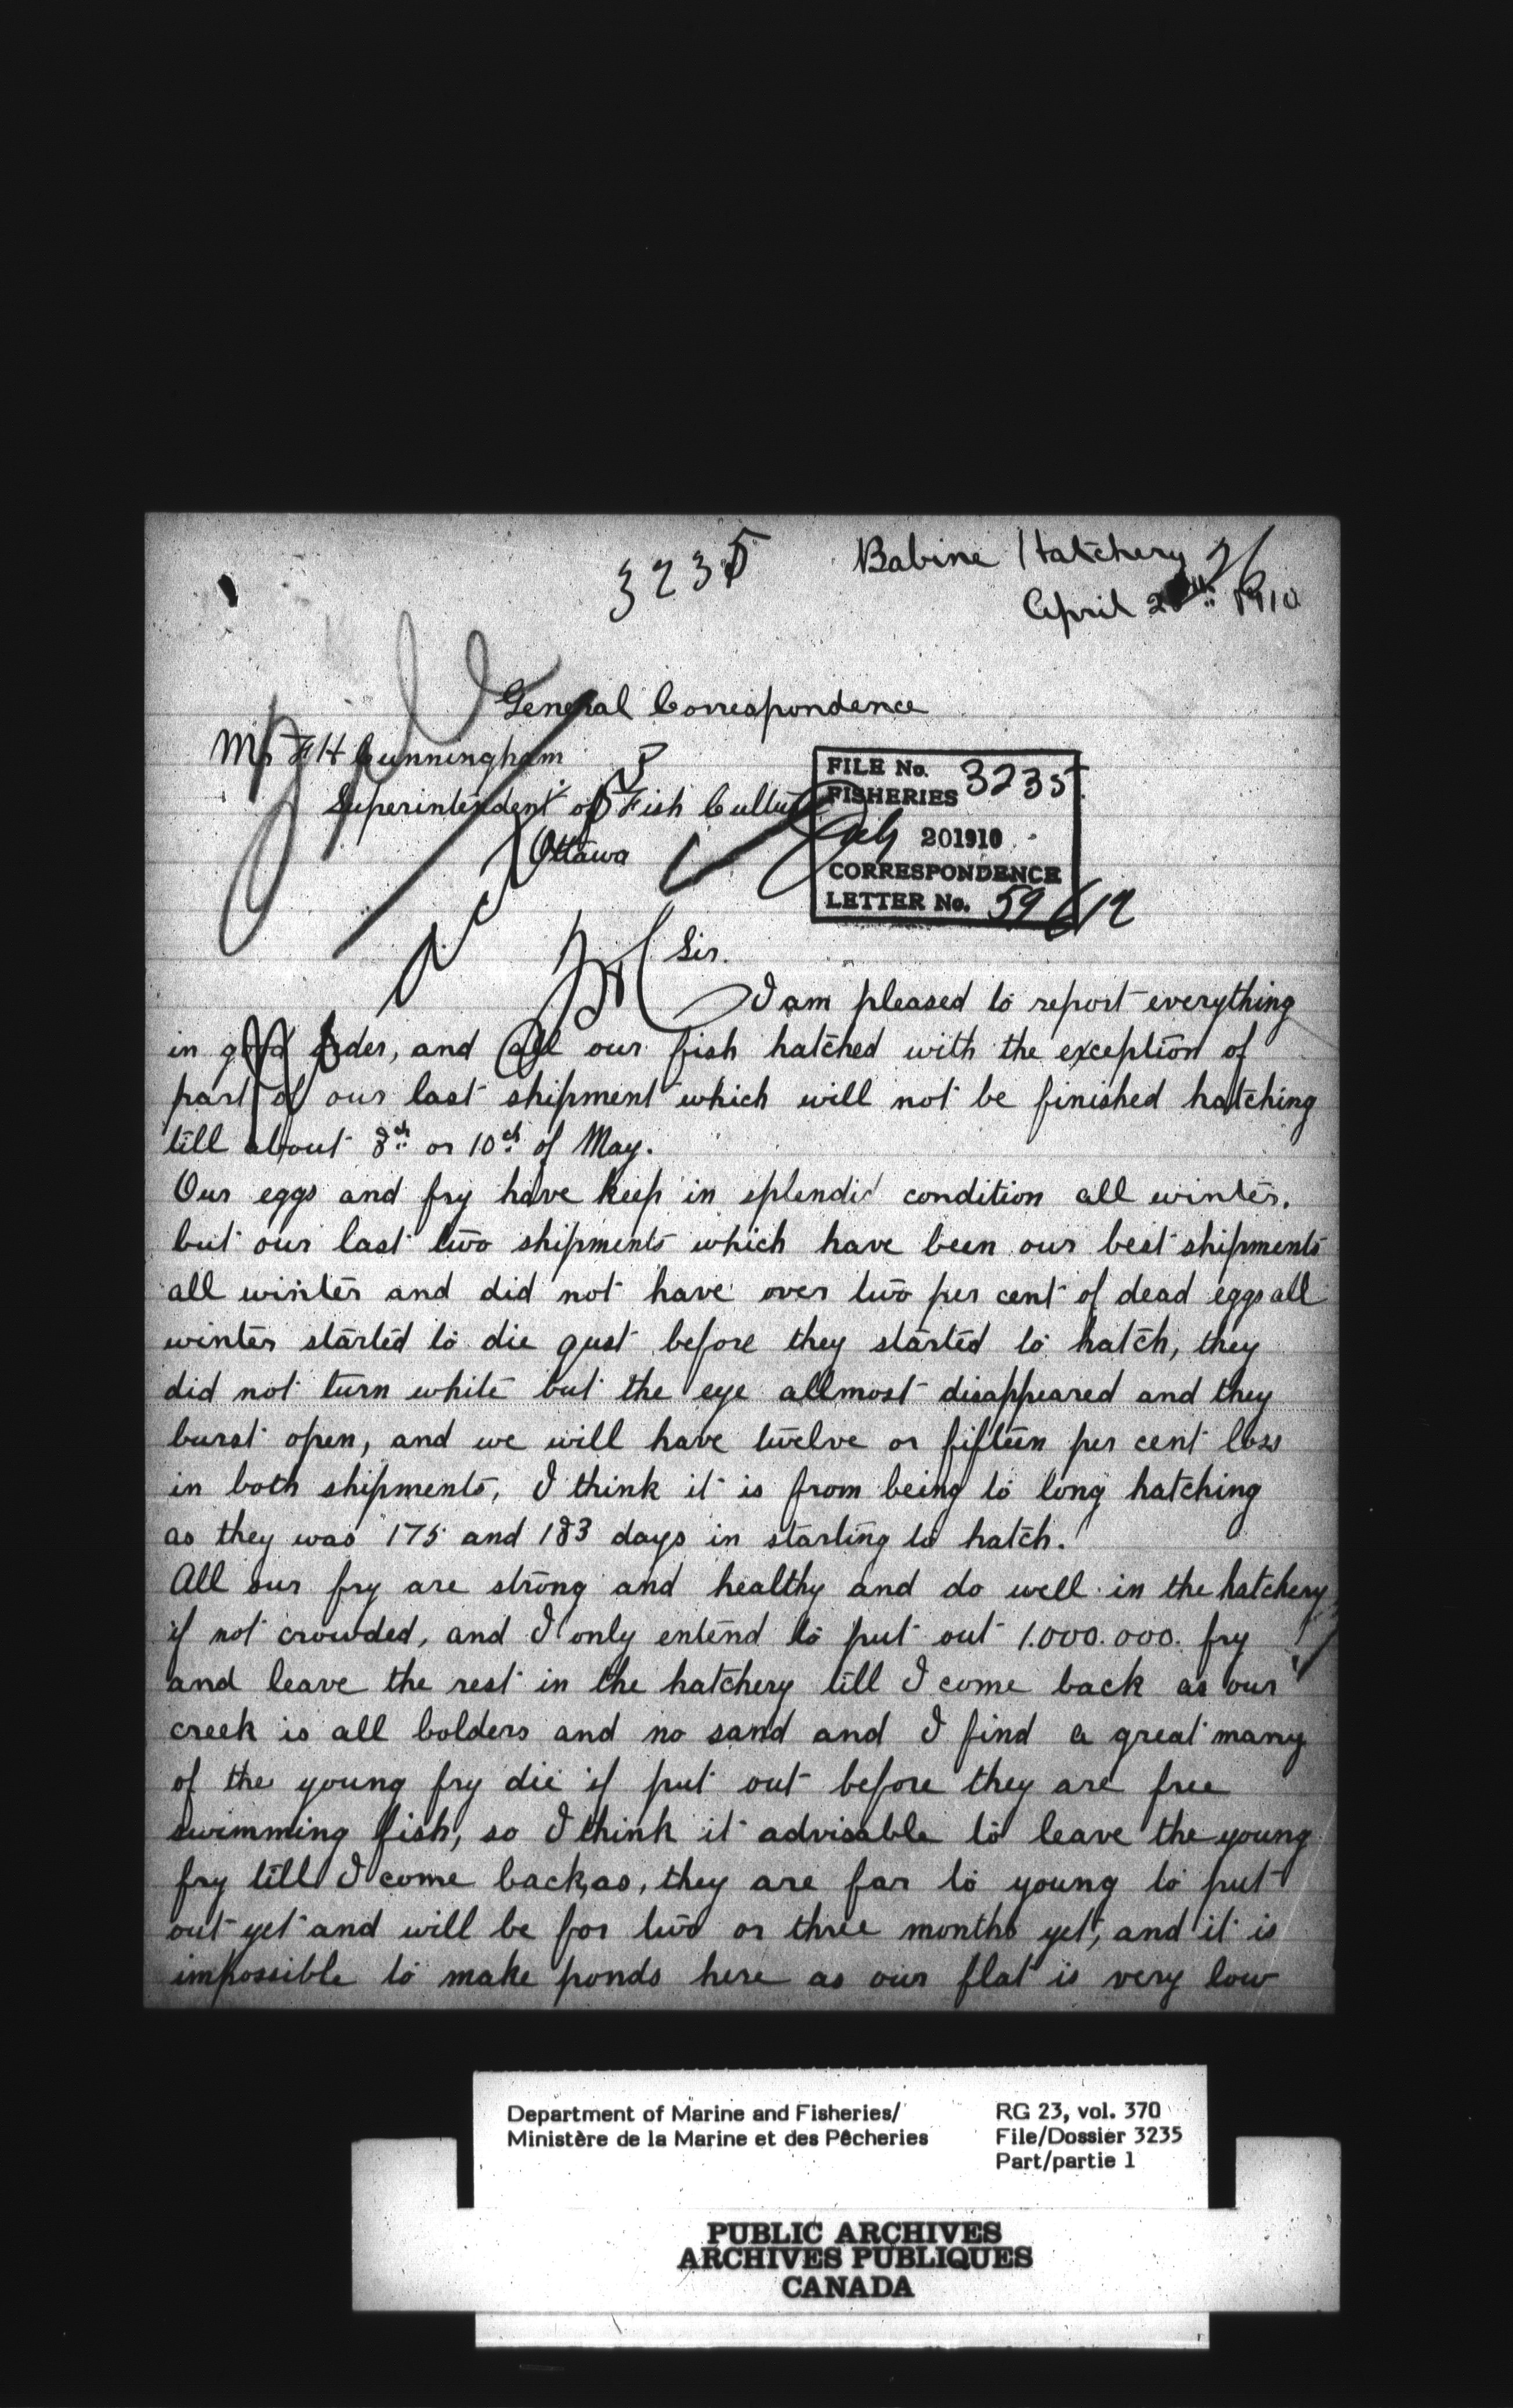 3235
Babine Hatchery
April 26 1910
General Correspondence
Mr F H Cunningham
Superintendent of Fish Culture
Ottawa
FILE No. 3235
FISHERIES
201910
CORRESPONDENCE
LETTER No.
Sir.
I am pleased to report everything
in good order, and all our fish hatched with the exception of
part of our last shipment which will not be finished hatching
till about 8th or 10th of May.
Our eggs and fry have keep in splendid condition all winter.
but our last two shipments which have been our best shipments
all winter and did not have over two per cent of dead eggs all
winter started to die gust before they started to hatch, they
did not turn white but the eye allmost disappeared and they
burst open, and we will have twelve or fifteen per cent loss
in both shipments, I think it is from being to long hatching
as they was 175 and 183 days in starting to hatch.
All our fry are strong and healthy and do well in the hatchery
if not crowded, and I only entend to put out 1.000.000. fry
and leave the rest in the hatchery till I come back as our
creek is all bolders and no sand and I find a great many
of the young fry die if put out before they are free
swimming fish, so I think it advisable to leave the young
fry till I come back, as, they are far to young to put
out yet and will be for two or three months yet, and it is
impossible to make ponds here as our flat is very low
Department of Marine and Fisheries/
Ministère de la Marine et des Pêcheries
RG 23, vol. 370
File/Dossier 3235
Part/partie 1
PUBLIC ARCHIVES
ARCHIVES PUBLIQUES
CANADA